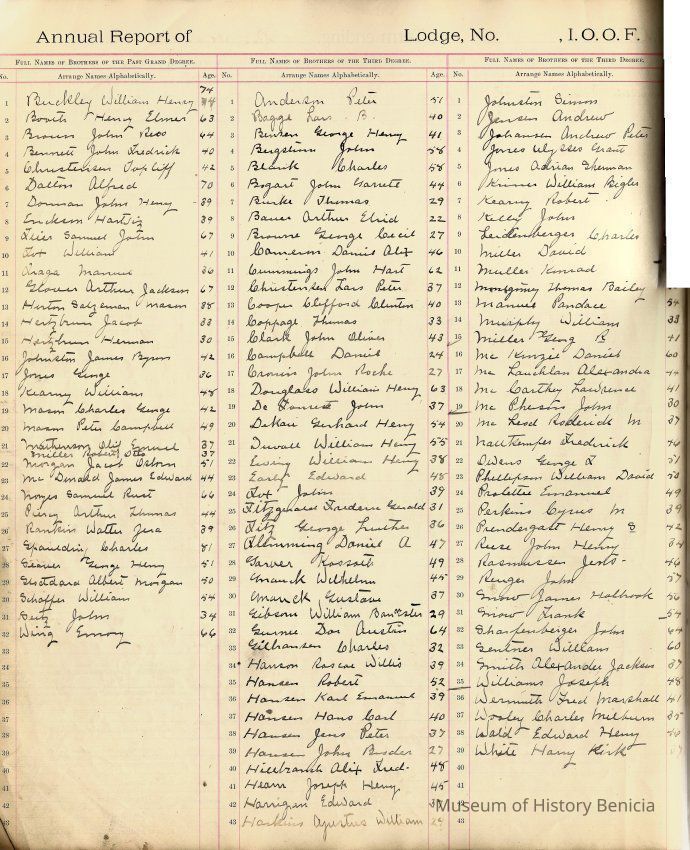 Annual Report of Lodge, No. , I. O. O. F.
Full Names of Brothers of the Past Grand Degree.
No. Arrange Names Alphabetically. Age.
74
1 Buckley William Henry 74
2 Booth Henry Elmer 63
3 Brown John Ross 44
4 Bennett John Fredrick 40
5 Christensen 42
6 Dalton Alfred 70
7 Dorman John Henry 39
8 Erickson 39
9 Samuel John 67
10 Fox William 41
11 Manuel 36
12 Glover Arthur Jackson 67
13 Mason 38
14 Jacob 33
15 Herman 30
16 Johnston James Byron 42
17 Jones George 36
18 Kearny William 48
19 Mason Charles George 42
20 Mason Peter Campbell 49
21 37
Miller Robert Otto 37
22 Morgan Jacob Osborn 51
23 Mc Donald James Edward 44
24 Noyes Samuel 64
25 Arthur Thomas 44
26 Rankins Walter 39
27 Spaulding Charles 81
28 George Henry 51
29 Albert Morgan 50
30 Schaffer William 54
31 John 34
32 Wing Emory 66
33
34
35
36
37
38
39
40
41
42
43
Full Names of Brothers of the Third Degree.
No. Arrange Names Alphabetically. Age.
1 Anderson Peter 51
2 Bagge Lars B. 40
3 George Henry 41
4 Bergstrom John 58
5 Blank Charles 58
6 Bogart John Garrete 44
7 Burke Thomas 29
8 Bauer Arthur 22
9 Browne George Cecil 27
10 Cameron Daniel Alex 46
11 Cummings John Hart 62
12 Christensen Lars Peter 37
13 Cooper Clifford Clinton 40
14 Coppage Thomas 33
15 Clark John Oliver 43
16 Campbell Daniel 24
17 Cronin John Roche 27
18 Douglass William Henry 63
19 De Forrest John 37
20 Gerhard Henry 54
21 Duvall William Henry 55
22 Ewing William Henry 38
23 Early Edward 48
24 Fox John 39
25 Fitzgerald Frederic Gerald 31
26 Fitz George Luther 36
27 Flemming Daniel A 47
28 Garver Kossoth 49
29 Wilhelm 45
30 Gustave 37
31 Gibson William Bannister 29
32 Gurnee Dor Austin 64
33 Gilhausen Charles 32
34 Hanson Roscoe Willis 39
35 Hansen Robert 52
36 Hansen Karl Emanuel 39
37 Hansen Hans Carl 40
38 Hansen Jens Peter 37
39 Hansen John 27
40 Hillebrandt Alix Fred- 48
41 Hearn Joseph Henry 45
42 Harrigan Edward
43 Haskins William
Full Names of Brothers of the Third Degree.
No. Arrange Names Alphabetically.
1 Johnston Simon
2 Jensen Andrew
3 Johansen Andrew Peter
4 Jones Ulysses Grant
5 Jones Adrian Sherman
6 William Bigler
7 Kearny Robert
8 Kelly John
9 Leidenberger Charles
10 Miller David
11 Muller Konrad
12 Montgomery Thomas Bailey
13 Manuel 54
14 Murphy William 33
15 Miller Georg 41
16 Mc Kenzie Daniel 60
17 Mc Lauchlan Alexandria 44
18 Mc Carthey Lawrence 41
19 Mc Pherson John 30
20 Mc Leod Roderick M 37
21 Frederick 46
22 Owens George 51
23 William David
24 Emanuel 49
25 Perkins Cyrus M 39
26 Prendergast Henry S 42
27 Ruse John Henry 34
28 Rasmussen Jens- 46
29 John 57
30 Snow James Holbrook 56
31 Snow Frank 54
32 Sharfenberger John 64
33 Gentner William 60
34 Smith Alexander Jackson 37
35 Williams Joseph 48
36 Wermuth Fred Marshall 41
37 Wooley Charles Milburn 35
38 Wald Edward Henry
39 White Harry Kirk
40
41
42
43
Museum of History Benicia